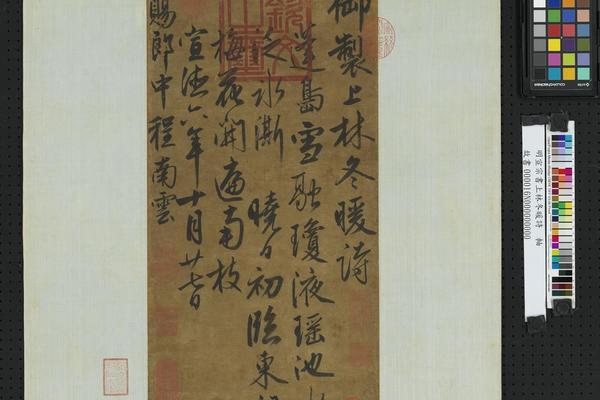 御製上林冬暖詩
蓬島雪融瓊液瑤池水
泛冰澌曉日初臨東
梅花開遍南枝
宣德六年十月廿七日
賜郎中程南雲
明宣宗書上林冬暖詩 軸
故書000016N000000000